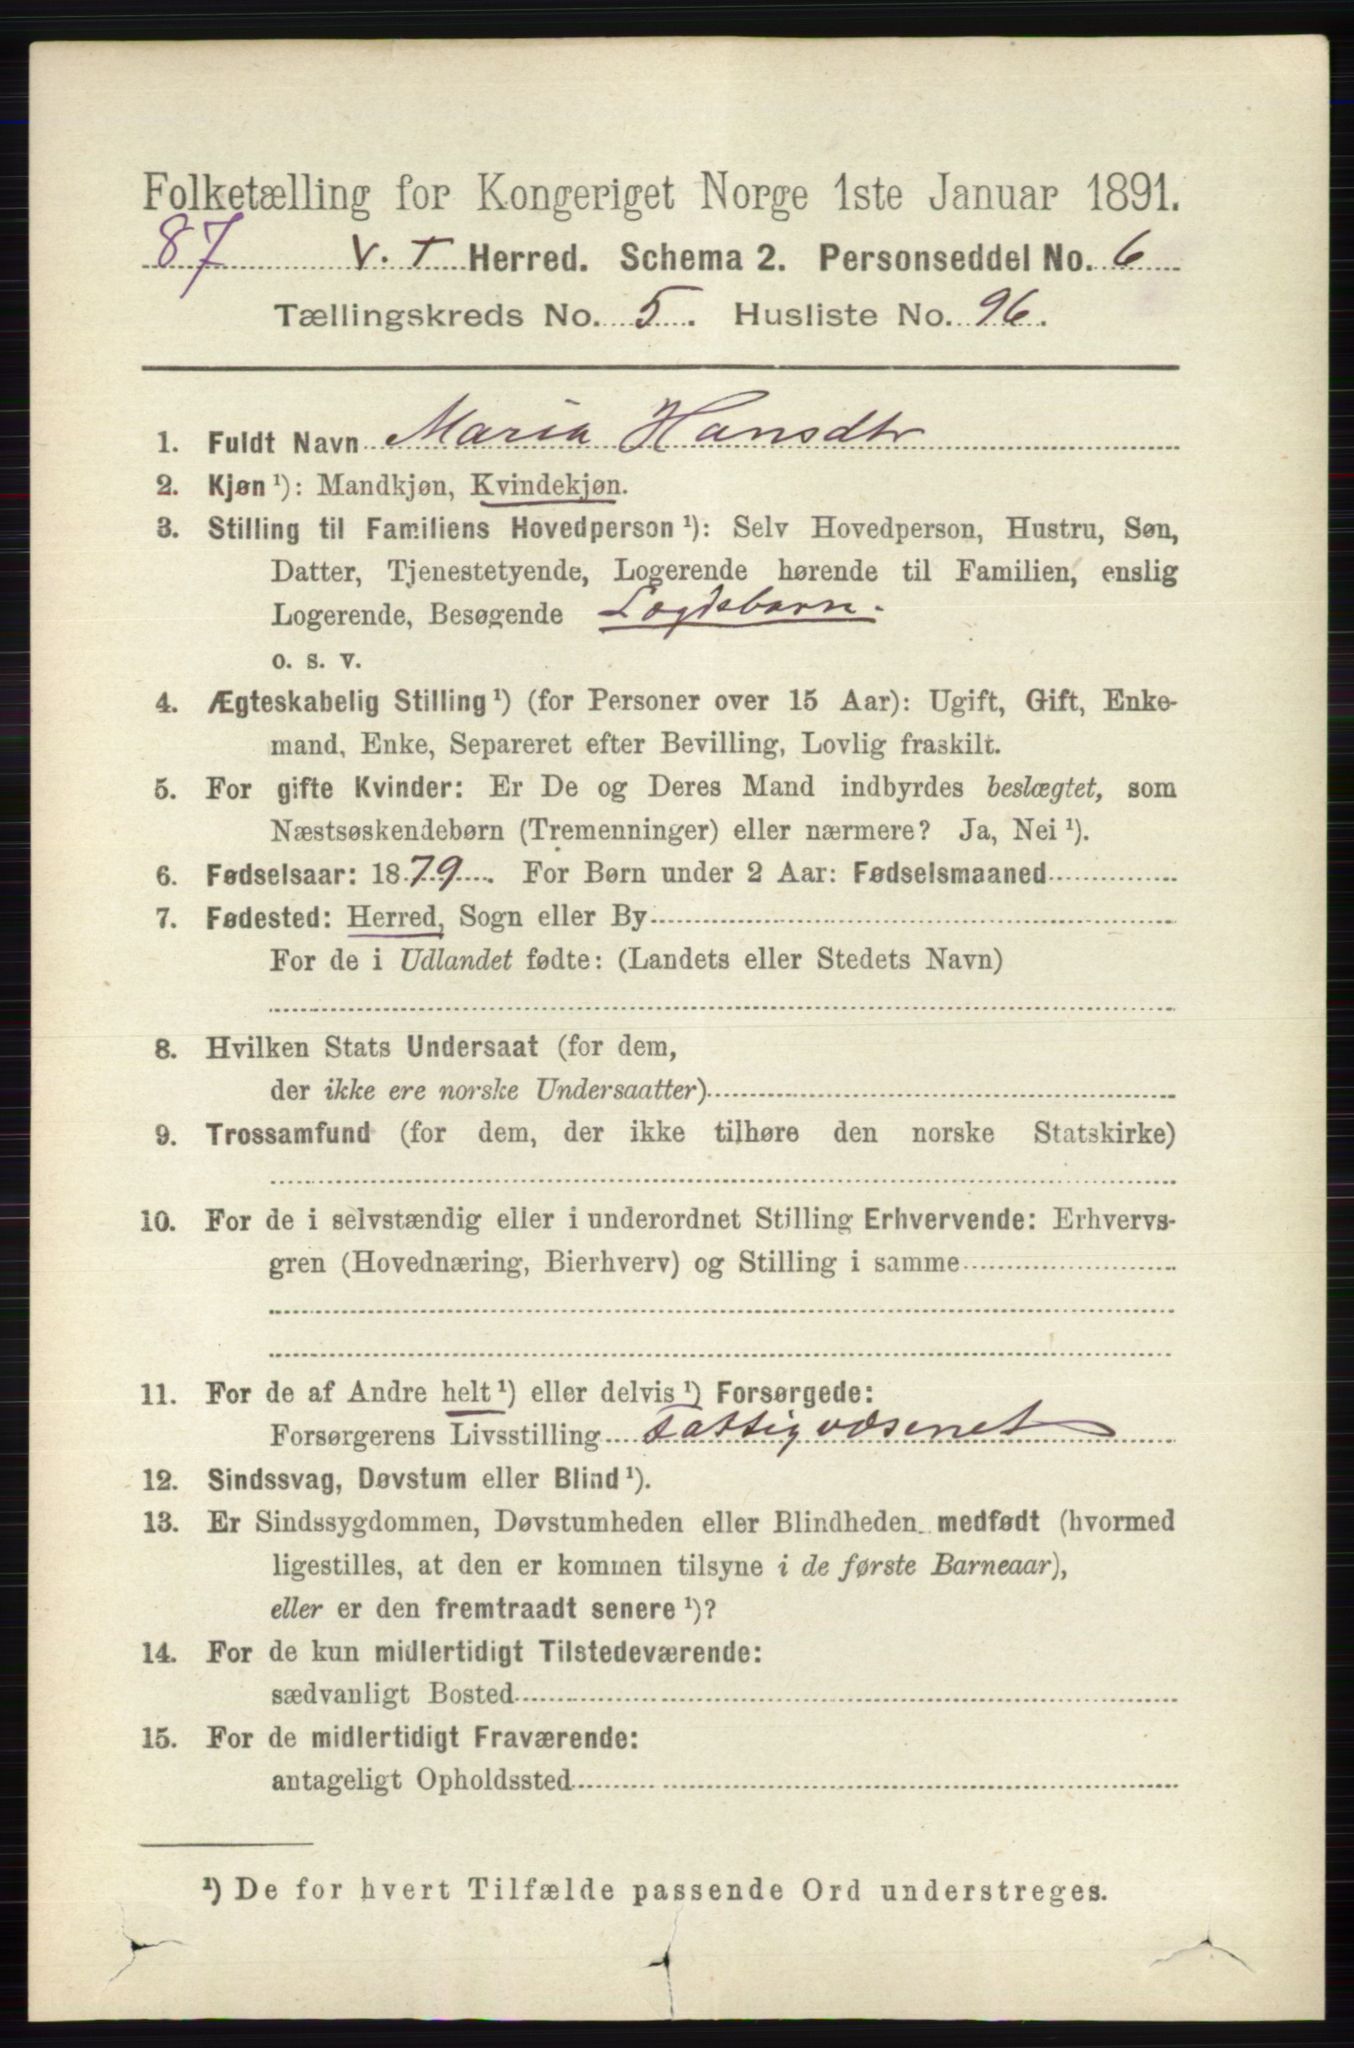 Folketælling for Kongeriget Norge 1ste Januar 1891.
87 V. T Herred. Schema 2. Personseddel No. 6
Tællingskreds No. 5. Husliste No. 96.
1. Fuldt Navn Maria Hansdtr
2. Kjøn ¹): Mandkjøn, Kvindekjøn.
3. Stilling til Familiens Hovedperson ¹): Selv Hovedperson, Hustru, Søn,
Datter, Tjenestetyende, Logerende hørende til Familien, enslig
Logerende, Besøgende Lægdsbarn.
o. s. v.
4. Ægteskabelig Stilling ¹) (for Personer over 15 Aar): Ugift, Gift, Enke-
mand, Enke, Separeret efter Bevilling, Lovlig fraskilt.
5. For gifte Kvinder: Er De og Deres Mand indbyrdes beslægtet, som
Næstsøskendebørn (Tremenninger) eller nærmere? Ja, Nei ¹).
6. Fødselsaar: 1879. For Børn under 2 Aar: Fødselsmaaned
7. Fødested: Herred, Sogn eller By
For de i Udlandet fødte: (Landets eller Stedets Navn)
8. Hvilken Stats Undersaat (for dem,
der ikke ere norske Undersaatter)
9. Trossamfund (for dem, der ikke tilhøre den norske Statskirke)
10. For de i selvstændig eller i underordnet Stilling Erhvervende: Erhvervs-
gren (Hovednæring, Bierhverv) og Stilling i samme
11. For de af Andre helt ¹) eller delvis ¹) Forsørgede:
Forsørgerens Livsstilling Fattigvæsenet
12. Sindssvag, Døvstum eller Blind ¹).
13. Er Sindssygdommen, Døvstumheden eller Blindheden medfødt (hvormed
ligestilles, at den er kommen tilsyne i de første Barneaar),
eller er den fremtraadt senere ¹)?
14. For de kun midlertidigt Tilstedeværende:
sædvanligt Bosted
15. For de midlertidigt Fraværende:
antageligt Opholdssted
¹) De for hvert Tilfælde passende Ord understreges.